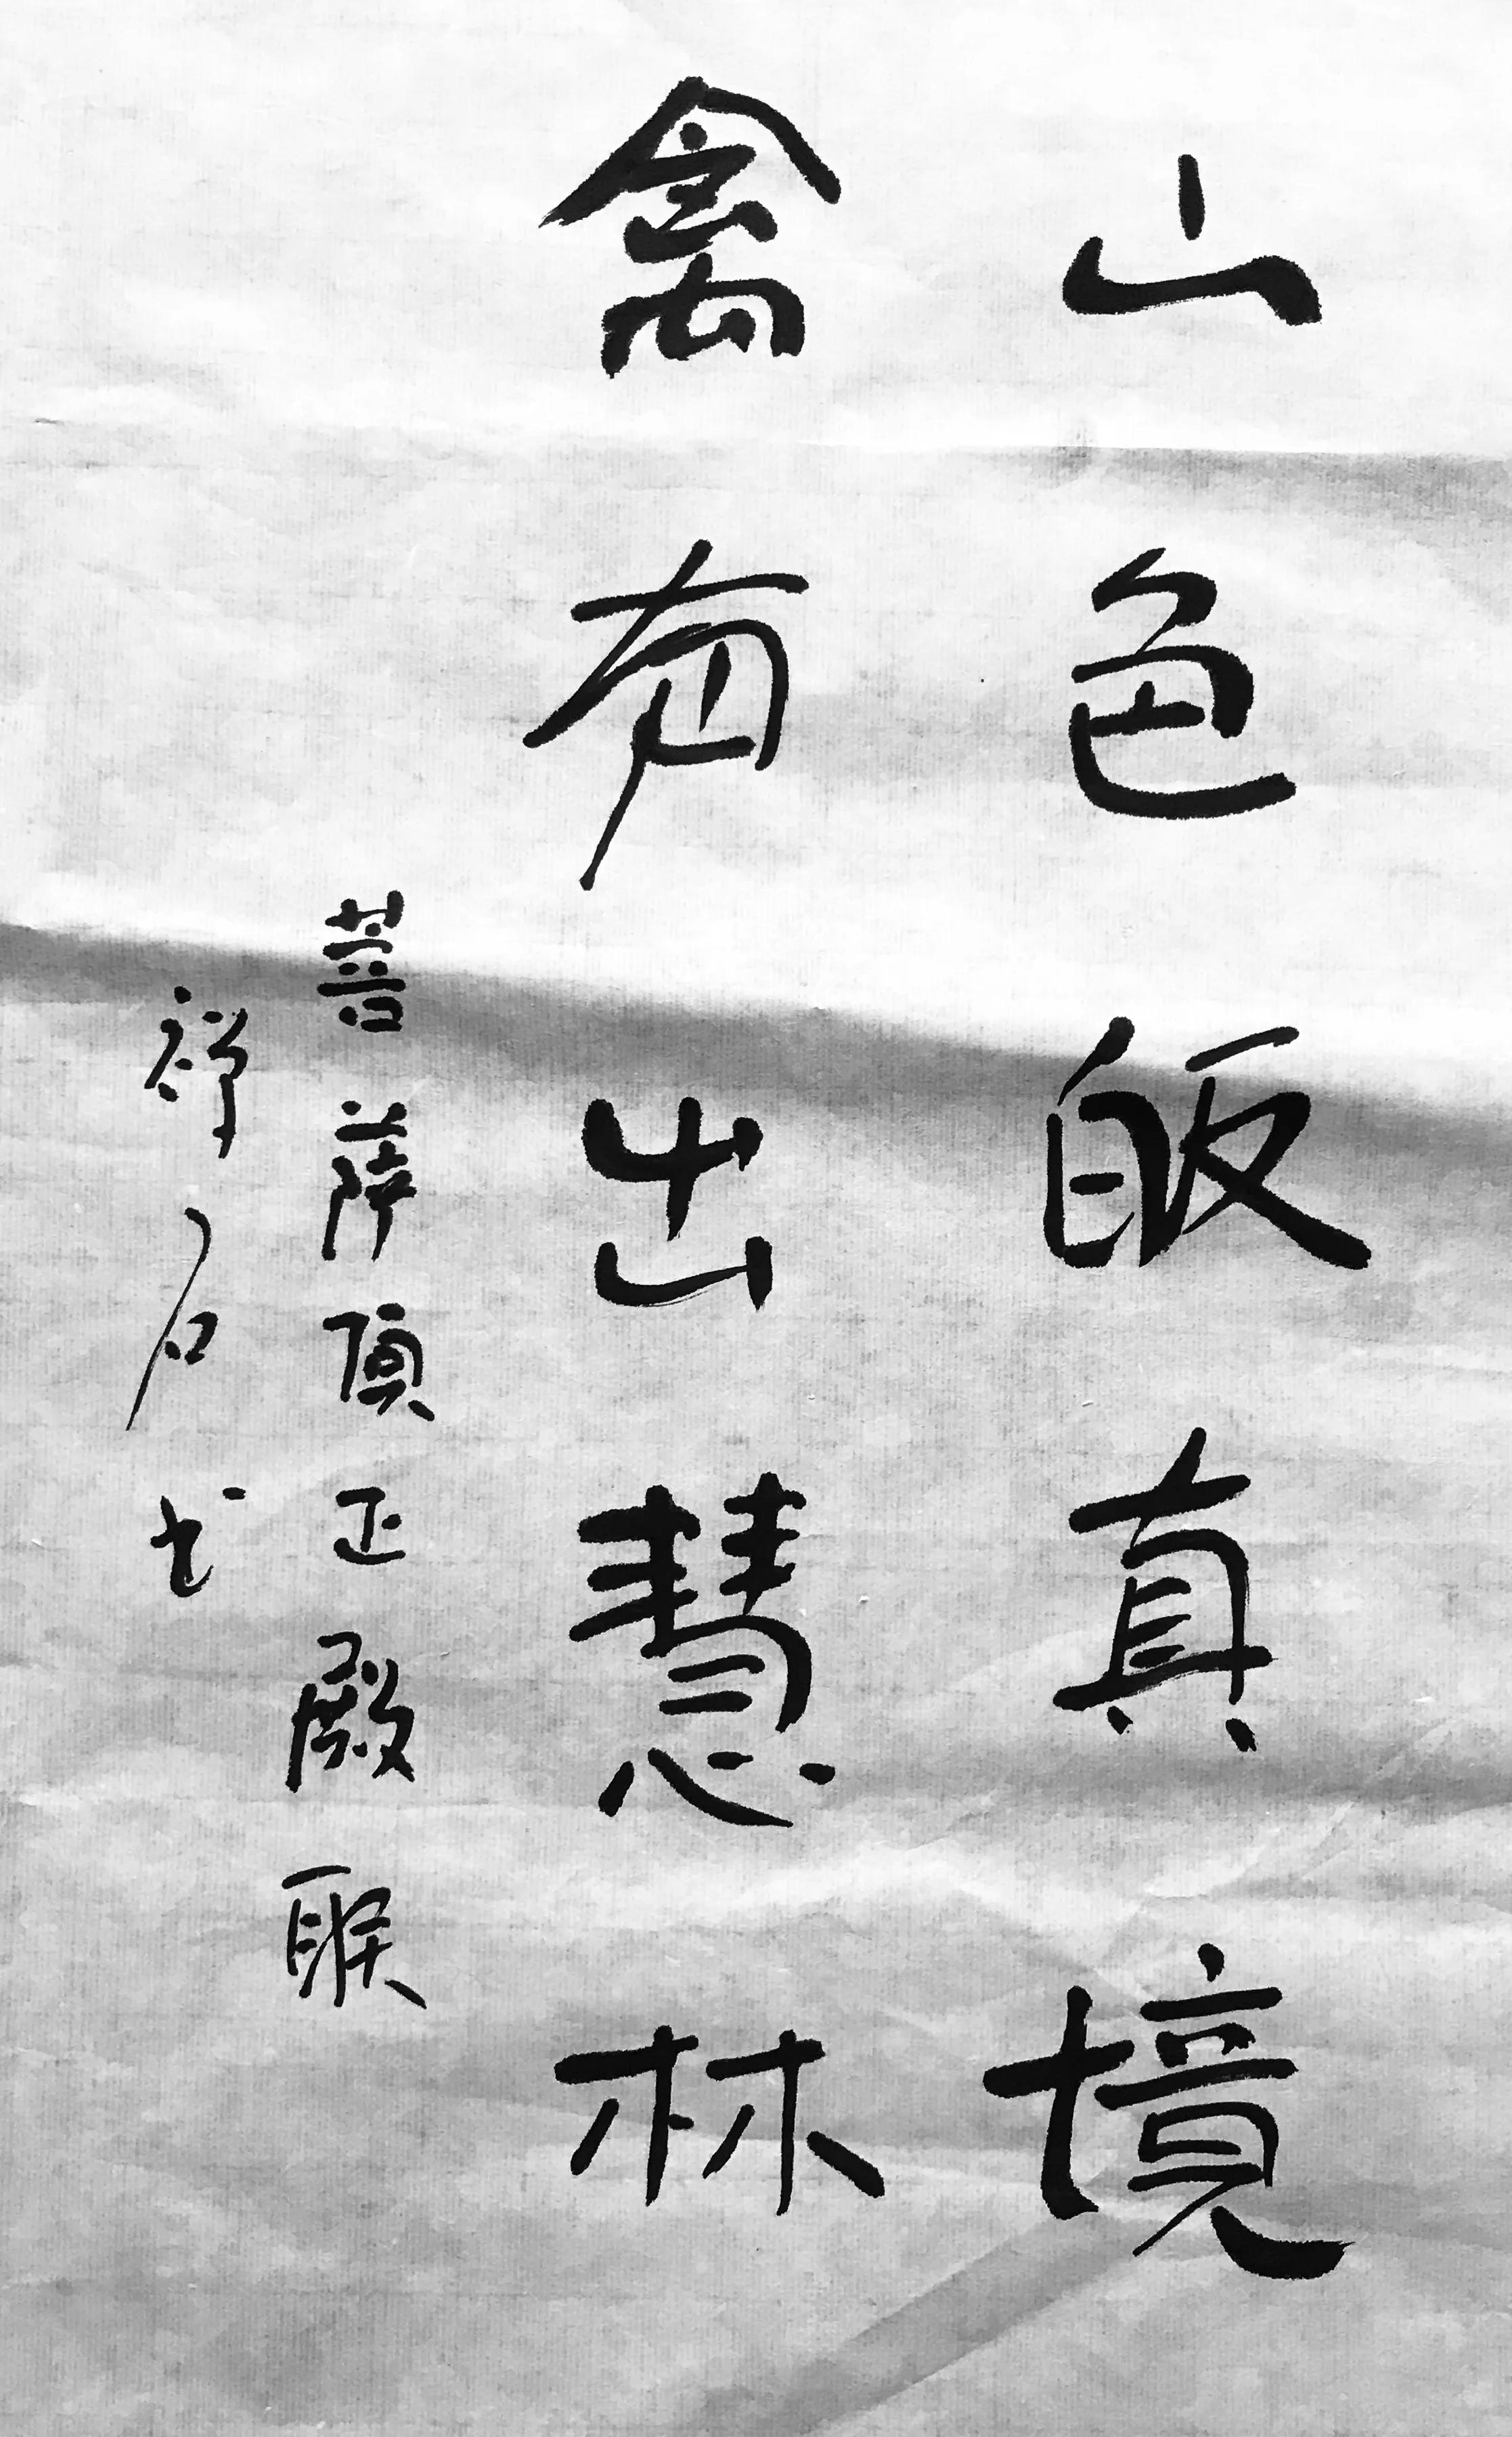 山色皈真境
禽声出慧林
菩薩頂正殿联
禅石书